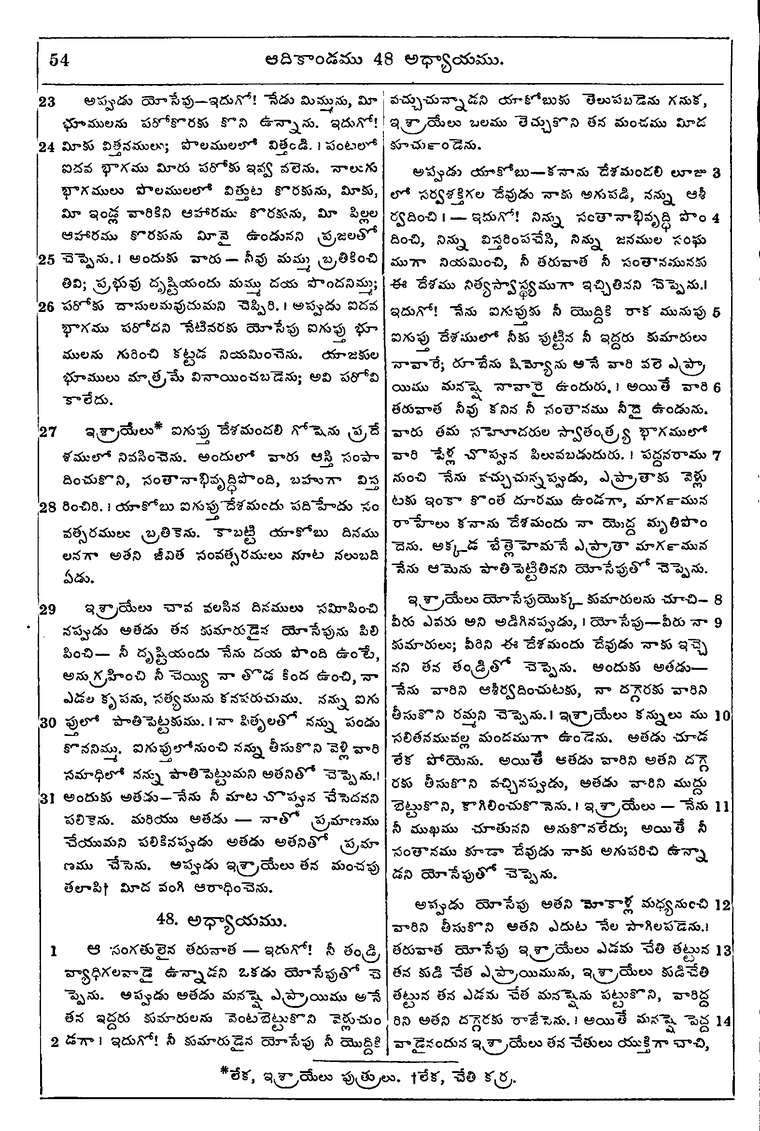 54 ఆదికాండము 48 అధ్యాయము.
23 అప్పుడు యోసేపు—ఇదుగో! నేడు మిమ్మును, మీ
భూములను పరోకొరకు కొని ఉన్నాను. ఇదుగో!
24 మీకు విత్తనములు; పొలములలో విత్తండి. । పంటలో
ఐదవ భాగము మీరు పరోకు ఇవ్వ వలెను. నాలుగు
భాగములు పొలములలో విత్తుట కొరకును, మీకు,
మీ ఇండ్ల వారికిని ఆహారము కొరకును, మీ పిల్లల
ఆహారము కొరకును మీవై ఉండునని ప్రజలతో
25 చెప్పెను. । అందుకు వారు — నీవు మమ్ము బ్రతికించి
తివి; ప్రభువు దృష్టియందు మమ్ము దయ పొందనిమ్ము;
26 పరోకు దాసులమవుదుమని చెప్పిరి. । అప్పుడు ఐదవ
భాగము పరోదని నేటివరకు యోసేపు ఐగుప్తు భూ
ములను గురించి కట్టడ నియమించెను. యాజకుల
భూములు మాత్రమే వినాయించబడెను; అవి పరోవి
కాలేదు.
27 ఇశ్రాయేలు* ఐగుప్తు దేశమందలి గోషెను ప్రదే
శములో నివసించెను. అందులో వారు ఆస్తి సంపా
దించుకొని, సంతానాభివృద్ధిపొంది, బహుగా విస్త
28 రించిరి. । యాకోబు ఐగుప్తు దేశమందు పదిహేడు సం
వత్సరములు బ్రతికెను. కాబట్టి యాకోబు దినము
లనగా అతని జీవిత సంవత్సరములు నూట నలుబది
ఏడు.
29 ఇశ్రాయేలు చావ వలసిన దినములు సమీపించి
నప్పుడు అతడు తన కుమారుడైన యోసేపును పిలి
పించి— నీ దృష్టియందు నేను దయ పొంది ఉంటే,
అనుగ్రహించి నీ చెయ్యి నా తొడ కింద ఉంచి, నా
ఎడల కృపను, సత్యమును కనపరుచుము. నన్ను ఐగు
30 ప్తులో పాతిపెట్టకుము. । నా పితృలతో నన్ను పండు
కొననిమ్ము. ఐగుప్తులోనుంచి నన్ను తీసుకొని వెళ్లి వారి
సమాధిలో నన్ను పాతిపెట్టుమని అతనితో చెప్పెను.।
31 అందుకు అతడు—నేను నీ మాట చొప్పున చేసెదనని
పలికెను. మరియు అతడు — నాతో ప్రమాణము
చేయుమని పలికినప్పుడు అతడు అతనితో ప్రమా
ణము చేసెను. అప్పుడు ఇశ్రాయేలు తన మంచపు
తలాపి† మీద వంగి ఆరాధించెను.
48. అధ్యాయము.
1 ఆ సంగతులైన తరువాత — ఇదుగో! నీ తండ్రి
వ్యాధిగలవాడై ఉన్నాడని ఒకడు యోసేపుతో చె
ప్పెను. అప్పుడు అతడు మనష్షె ఎఫ్రాయిము అనే
తన ఇద్దరు కుమారులను వెంటబెట్టుకొని వెళ్లుచుం
2 డగా। ఇదుగో! నీ కుమారుడైన యోసేపు నీ యొద్దికి
వచ్చుచున్నాడని యాకోబుకు తెలుపబడెను గనుక,
ఇశ్రాయేలు బలము తెచ్చుకొని తన మంచము మీద
కూచుండెను.
అప్పుడు యాకోబు—కనాను దేశమందలి లూజు 3
లో సర్వశక్తిగల దేవుడు నాకు అగుపడి, నన్ను ఆశీ
ర్వదించి। — ఇదుగో! నిన్ను సంతానాభివృద్ధి పొం 4
దించి, నిన్ను విస్తరింపచేసి, నిన్ను జనముల సంఘ
ముగా నియమించి, నీ తరువాత నీ సంతానమునకు
ఈ దేశము నిత్యస్వాస్థ్యముగా ఇచ్చితినని చెప్పెను.।
ఇదుగో! నేను ఐగుప్తుకు నీ యొద్దికి రాక మునుపు 5
ఐగుప్తు దేశములో నీకు పుట్టిన నీ ఇద్దరు కుమారులు
నావారే; రూబేను షిమ్యోను అనే వారి వలె ఎఫ్రా
యిము మనష్షె నావారై ఉందురు. । అయితే వారి 6
తరువాత నీవు కనిన నీ సంతానము నీదై ఉండును.
వారు తమ సహోదరుల స్వాతంత్ర్య భాగములో
వారి పేళ్ల చొప్పున పిలువబడుదురు. । పద్దనరాము 7
నుంచి నేను వచ్చుచున్నప్పుడు, ఎఫ్రాతాకు వెళ్లు
టకు ఇంకా కొంత దూరము ఉండగా, మార్గమున
రాహేలు కనాను దేశమందు నా యొద్ద మృతిపొం
దెను. అక్కడ బేత్లెహేమనే ఎఫ్రాతా మార్గమున
నేను ఆమెను పాతిపెట్టితినని యోసేపుతో చెప్పెను.
ఇశ్రాయేలు యోసేపుయొక్క కుమారులను చూచి— 8
వీరు ఎవరు అని అడిగినప్పుడు, । యోసేపు—వీరు నా 9
కుమారులు; వీరిని ఈ దేశమందు దేవుడు నాకు ఇచ్చె
నని తన తండ్రితో చెప్పెను. అందుకు అతడు—
నేను వారిని ఆశీర్వదించుటకు, నా దగ్గెరకు వారిని
తీసుకొని రమ్మని చెప్పెను. । ఇశ్రాయేలు కన్నులు ము 10
సలితనమువల్ల మందముగా ఉండెను. అతడు చూడ
లేక పోయెను. అయితే అతడు వారిని అతని దగ్గె
రకు తీసుకొని వచ్చినప్పుడు, అతడు వారిని ముద్దు
బెట్టుకొని, కాగిలించుకొనెను. । ఇశ్రాయేలు — నేను 11
నీ ముఖము చూతునని అనుకొనలేదు; అయితే నీ
సంతానము కూడా దేవుడు నాకు అగుపరిచి ఉన్నా
డని యోసేపుతో చెప్పెను.
అప్పుడు యోసేపు అతని మోకాళ్ల మధ్యనుంచి 12
వారిని తీసుకొని అతని ఎదుట నేల సాగిలపడెను.।
తరువాత యోసేపు ఇశ్రాయేలు ఎడమ చేతి తట్టున 13
తన కుడి చేత ఎఫ్రాయిమును, ఇశ్రాయేలు కుడిచేతి
తట్టున తన ఎడమ చేత మనష్షెను పట్టుకొని, వారిద్ద
రిని అతని దగ్గెరకు రాజేసెను. । అయితే మనష్షె పెద్ద 14
వాడైనందున ఇశ్రాయేలు తన చేతులు యుక్తిగా చాచి,
*లేక, ఇశ్రాయేలు పుత్రులు. †లేక, చేతి కర్ర.